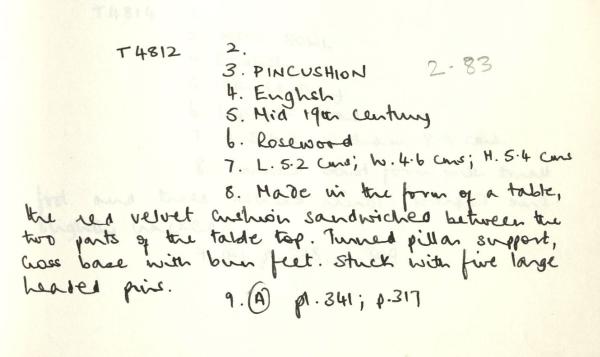 T4812 2.
3. PINCUSHION 2-83
4. English
5. Mid 19th century
6. Rosewood
7. L. 5.2 cms; W. 4.6 cms; H. 5.4 cms
8. Made in the form of a table,
the red velvet cushion sandwiched between the
two parts of the table top. Turned pillar support,
cross base with bun feet. Stuck with five large
headed pins.
9. (A) pl. 341; p. 317